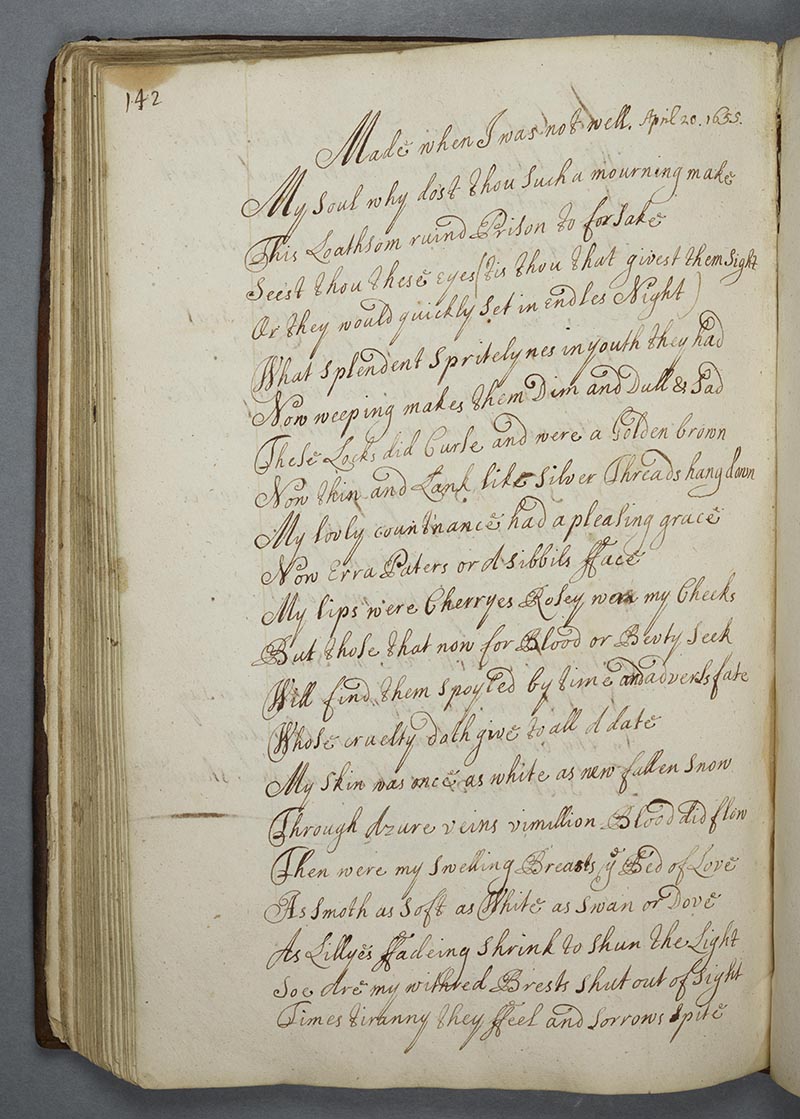 142
Made when I was not well. April 20. 1655.
My Soul why dost thou Such a mourning make
This Loathsom ruind Prison to forsake
Seest thou these Eyes (tis thou that givest them Sight
Or they would quickly Set in Endles Night)
What Splendent Spritelynes in youth they had
Now weeping makes them Dim and Dull & Sad
These Locks did Curle and were a Golden brown
Now thin and Lank like Silver Threads hang down
My lovly countnance had a pleasing grace
Now Erra Paters or A Sibbils fface
My lips were Cherryes Rosey were my Cheeks
But those that now for Blood or Bevty Seek
Will find them Spoyled by time and advers fate
Whose cruelty doth give to all A date
My Skin was once as white as new fallen Snow
Through Azure veins vimillion Blood did flow
Then were my Swelling Breasts ye Bed of Love
As Smoth as Soft as White as Swan or Dove
As Lillyes ffadeing Shrink to Shun the Light
Soe Are my withred Brests Shut out of Sight
Times tiranny they ffeel and Sorrows Spite